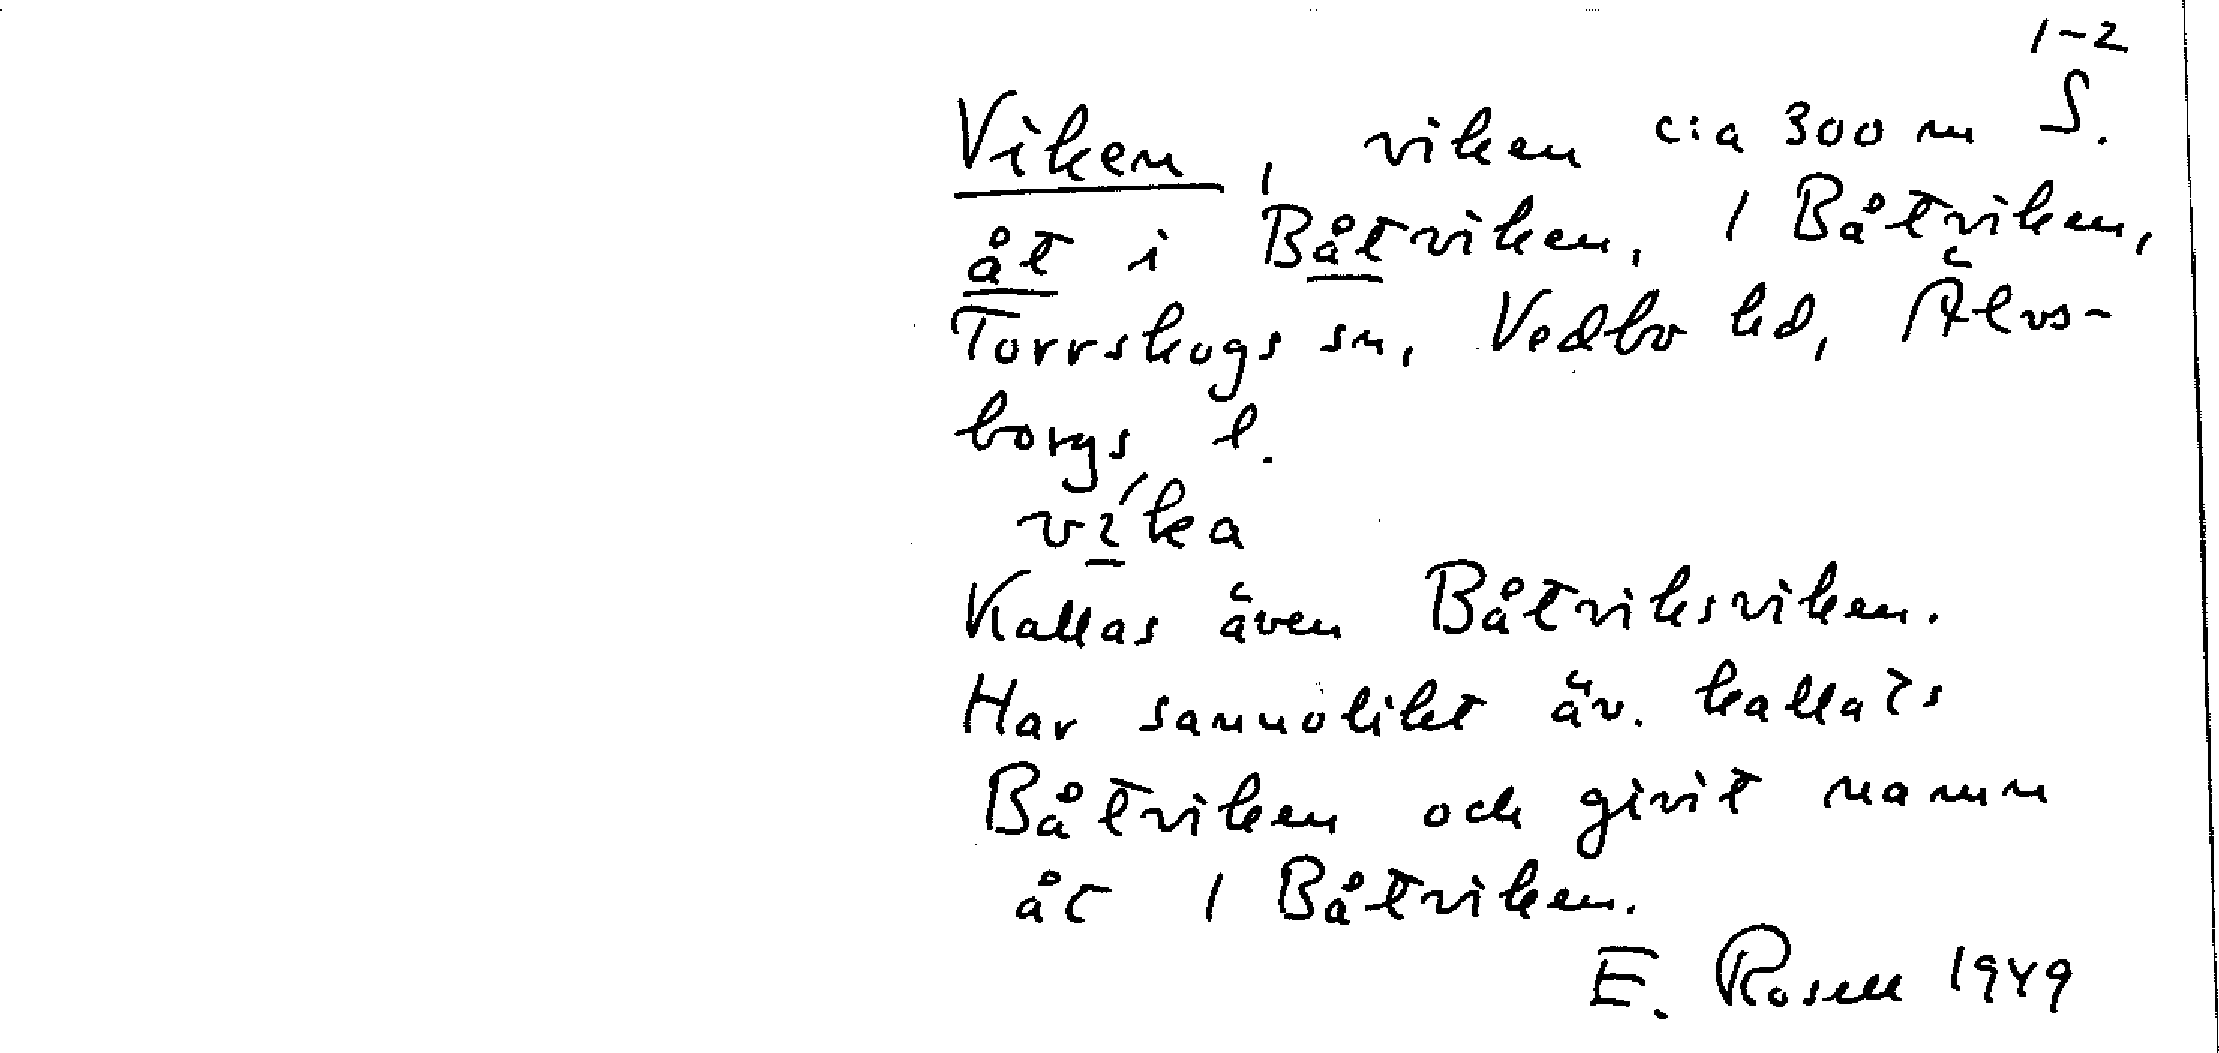 1-2
Viken, viken c:a 300 m S.
åt i Båtviken, 1 Båtviken,
Torrskogs sn, Vedbo hd, Älvs-
borgs l.
víka
Kallas även Båtviksviken.
Har sannolikt äv. kallats
Båtviken och givit namn
åt 1 Båtviken.
E. Rosell 1949